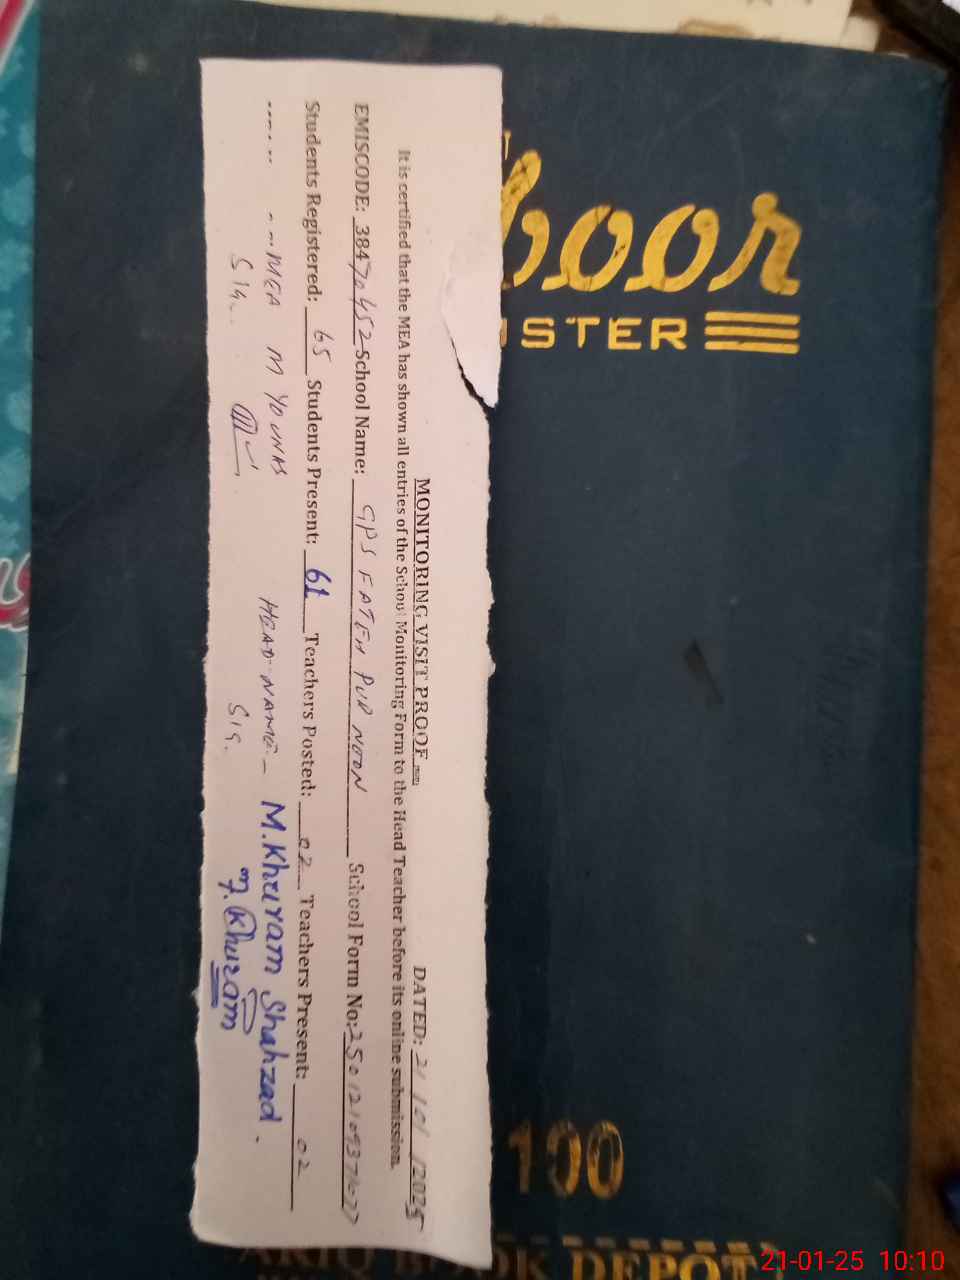 MONITORING VISIT PROOF DATED: 21/01/2025
It is certified that the MEA has shown all entries of the School Monitoring Form to the Head Teacher before its online submission.
EMISCODE: 38470452 School Name: GPS FATEH PUR NOON School Form No:
Students Registered: 65 Students Present: 61 Teachers Posted: 02 Teachers Present: 02
MEA M YOUNAS HEAD NAME- M. Khuram Shahzad.
Sig. Sig. M. Khuram
hoor
ISTER
100
BOOK DEPOT
21-01-25 10:10